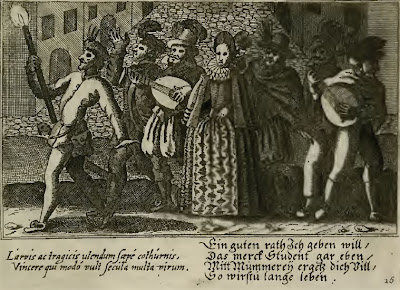 Larvis ac tragicis utendum sæpè cothurnis,
Vincere qui modò vult secula multa virum.
Ein guten rath Ich geben will/
Das merck Student gar eben/
Mitt Mummereÿ ergetz dich Vill/
So wirstu lange leben.
26